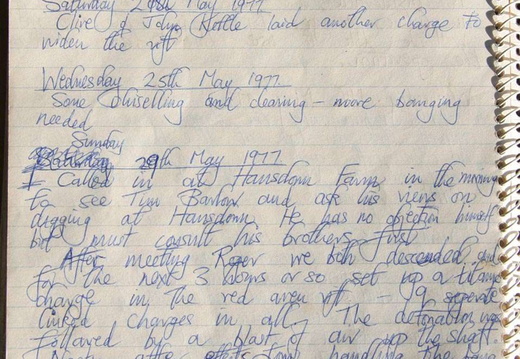 Saturday 21st May 1977
Clive & John Kettle laid another charge to
widen the rift
Wednesday 25th May 1977
Some chiselling and clearing - more banging
needed
Sunday
29th May 1977
I Called in at Hansdown Farm in the morning
to see Tim Barlow and ask his views on
digging at Hansdown. He has no objection himself
but must consult his brothers first
After meeting Roger we both descended and
for the next 3 hours or so set up a
charge in the red area rift - 9 seperate
linked charges in all. The detonation was
followed by a blast of air up the shaft.
after effects